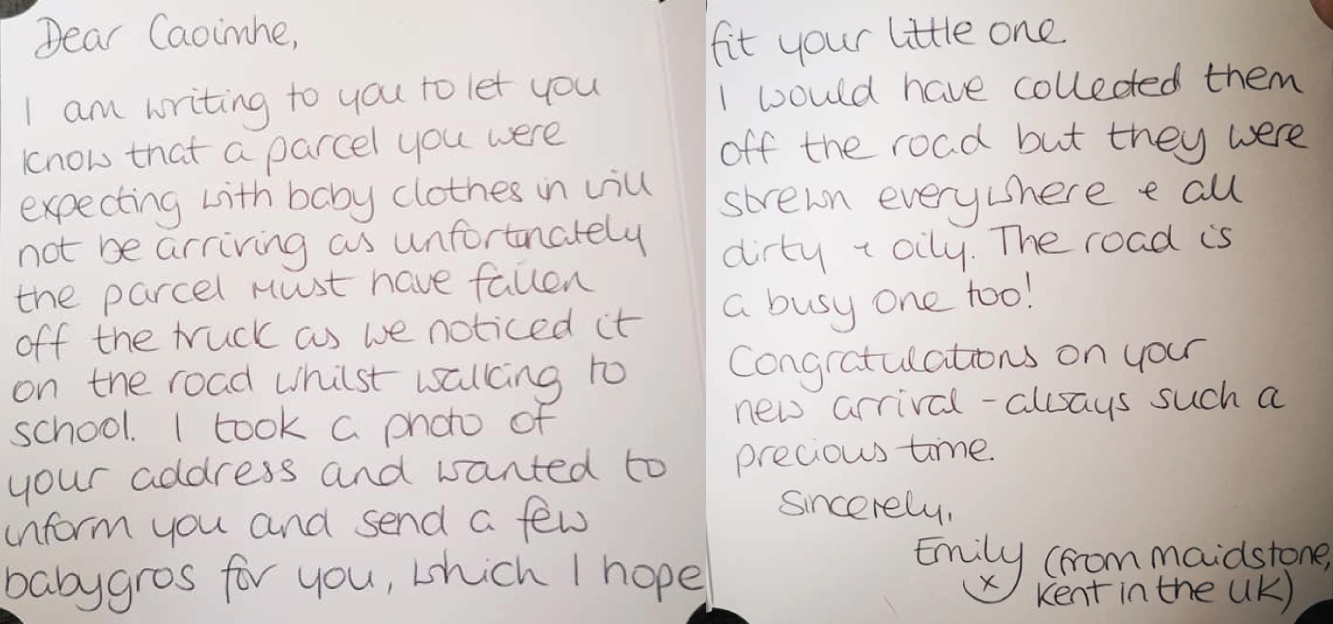 Dear Caoimhe,
I am writing to you to let you
know that a parcel you were
expecting with baby clothes in will
not be arriving as unfortunately
the parcel must have fallen
off the truck as we noticed it
on the road whilst walking to
school. I took a photo of
your address and wanted to
inform you and send a few
babygros for you, which I hope
fit your little one
I would have collected them
off the road but they were
strewn everywhere & all
dirty & oily. The road is
a busy one too!
Congratulations on your
new arrival - always such a
precious time.
Sincerely,
Emily (from Maidstone,
x Kent in the UK)